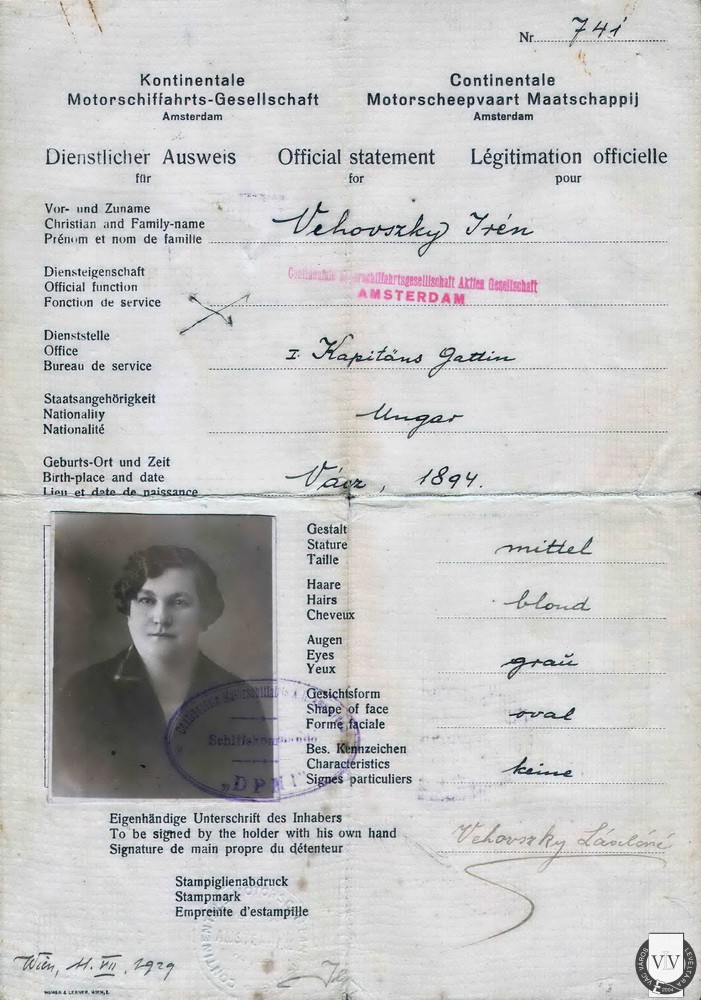 Nr. 741
Kontinentale
Motorschiffahrts-Gesellschaft
Amsterdam
Continentale
Motorscheepvaart Maatschappij
Amsterdam
Dienstlicher Ausweis
für
Official statement
for
Légitimation officielle
pour
Vor- und Zuname
Christian and Family-name
Prénom et nom de famille
Vehovszky Irén
Diensteigenschaft
Official function
Fonction de service
Motorschiffahrtsgesellschaft Aktien Gesellschaft
AMSTERDAM
Dienststelle
Office
Bureau de service
I. Kapitäns Gattin
Staatsangehörigkeit
Nationality
Nationalité
Ungar
Geburts-Ort und Zeit
Birth-place and date
Lieu et date de naissance
Vácz, 1894.
Gestalt
Stature
Taille
mittel
Haare
Hairs
Cheveux
blond
Augen
Eyes
Yeux
graŭ
Gesichtsform
Shape of face
Forme faciale
oval
Bes. Kennzeichen
Characteristics
Signes particuliers
keine
Schiffskommando
Eigenhändige Unterschrift des Inhabers
To be signed by the holder with his own hand
Signature de main propre du détenteur
Vehovszky Lászlóné
Stampiglienabdruck
Stampmark
Empreinte d'estampille
Wien, 11. VII. 1929
VÁC VÁROS LEVÉLTÁRA
VLV
2004